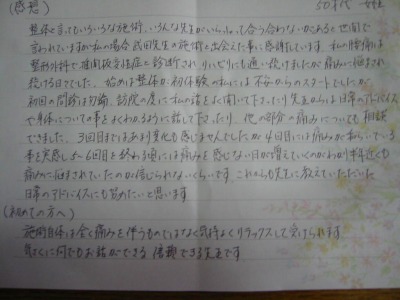 (感想) 50才代 女性
整体と言ってもいろいろな施術、いろんな先生がいらっしゃって合う合わないがあると世間で
言われていますが私の場合 武田先生の施術と出会えた事に感謝しています。私の腰痛は
整形外科で椎間板変性症と診断され、リハビリにも通い続けましたが痛みに悩まされ
続ける日々でした。始めは整体が初体験の私には不安からのスタートでしたが、
初回の問診は勿論、訪院の度に私の話をよく聞いて下さったり先生からは日常のアドバイス
や身体についての事をよくわかるように話して下さったり、他の部分の痛みについても相談
できました。3回目まではあまり変化も感じませんでしたが4回目には痛みが和らいでいる
事を実感し、5〜6回目を終わる頃には痛みを感じない日が増えていくのがわかり半年近くも
痛みに悩まされていたのが信じられないくらいです。これからも先生に教えていただいた
日常のアドバイスにも努めたいと思います
(初めての方へ)
施術自体は全く痛みを伴うものではなく気持よくリラックスして受けられます
気さくに何でもお話ができる 信頼できる先生です